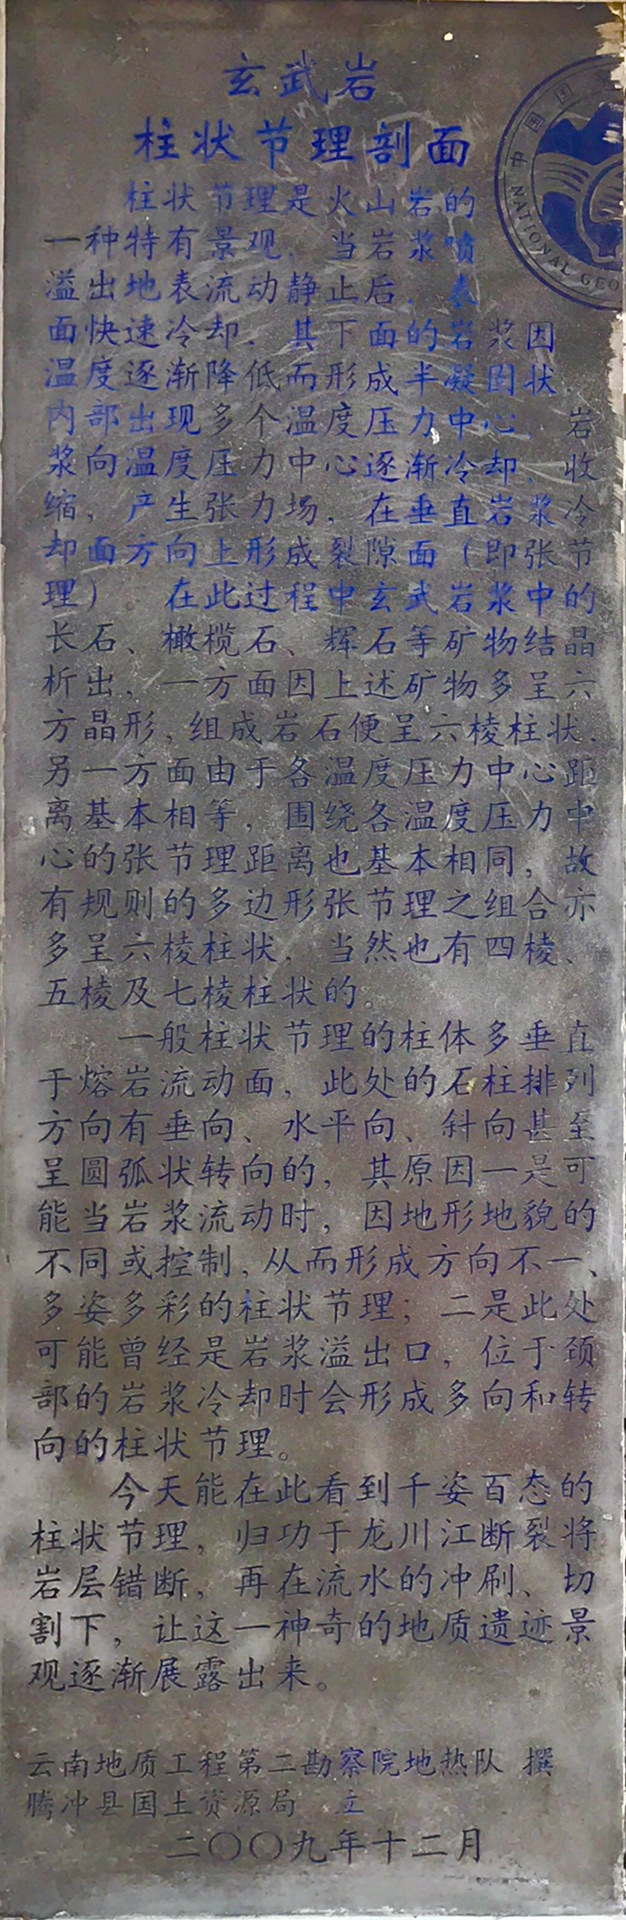 玄武岩
柱状节理剖面
柱状节理是火山岩的
一种特有景观，当岩浆喷
溢出地表流动静止后，表
面快速冷却，其下面的岩浆因
温度逐渐降低而形成半凝固状，
内部出现多个温度压力中心，岩
浆向温度压力中心逐渐冷却、收
缩，产生张力场，在垂直岩浆冷
却面方向上形成裂隙面（即张节
理） 在此过程中玄武岩浆中的
长石、橄榄石、辉石等矿物结晶
析出，一方面因上述矿物多呈六
方晶形，组成岩石便呈六棱柱状，
另一方面由于各温度压力中心距
离基本相等，围绕各温度压力中
心的张节理距离也基本相同，故
有规则的多边形张节理之组合亦
多呈六棱柱状，当然也有四棱、
五棱及七棱柱状的。
一般柱状节理的柱体多垂直
于熔岩流动面，此处的石柱排列
方向有垂向、水平向、斜向甚至
呈圆弧状转向的，其原因一是可
能当岩浆流动时，因地形地貌的
不同或控制，从而形成方向不一、
多姿多彩的柱状节理；二是此处
可能曾经是岩浆溢出口，位于颈
部的岩浆冷却时会形成多向和转
向的柱状节理。
今天能在此看到千姿百态的
柱状节理，归功于龙川江断裂将
岩层错断，再在流水的冲刷、切
割下，让这一神奇的地质遗迹景
观逐渐展露出来。
云南地质工程第二勘察院地热队 撰
腾冲县国土资源局 立
二〇〇九年十二月
中国国
NATIONAL GEO